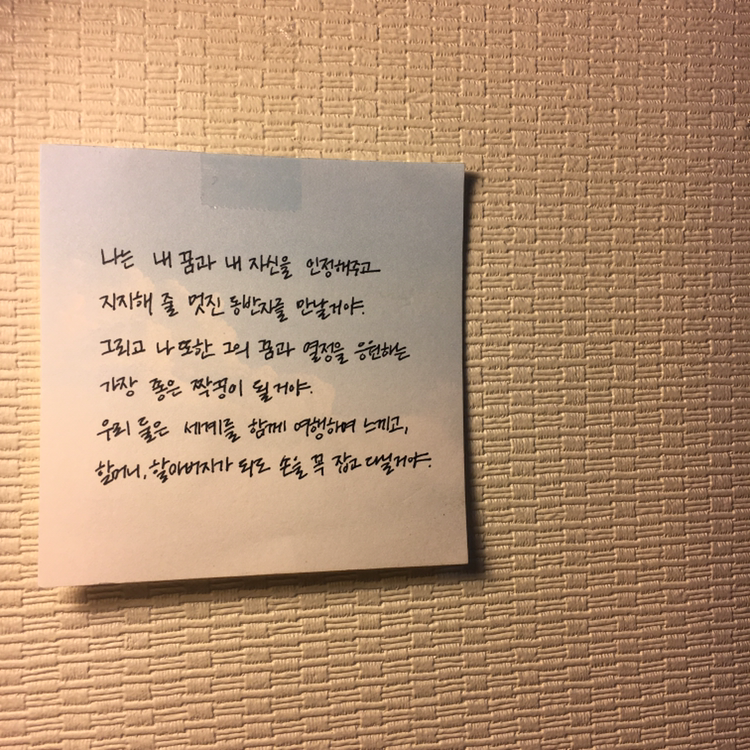 나는 내 꿈과 내 자신을 인정해주고
지지해 줄 멋진 동반자를 만날거야.
그리고 나 또한 그의 꿈과 열정을 응원하는
가장 좋은 짝꿍이 될거야.
우리 둘은 세계를 함께 여행하며 느끼고,
할머니, 할아버지가 되도 손을 꼭 잡고 다닐거야.